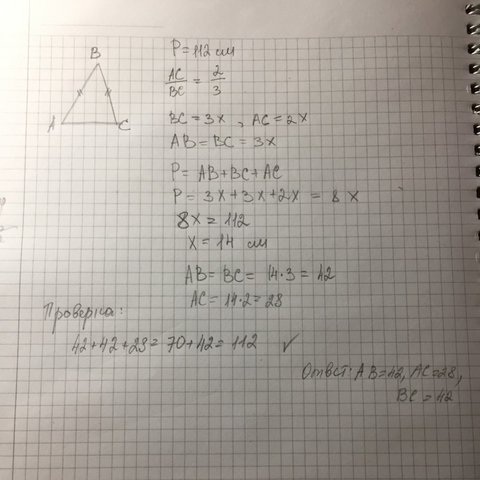 B
A
C
P = 112 см
AC/BC = 2/3
BC = 3x, AC = 2x
AB = BC = 3x
P = AB+BC+AC
P = 3x+3x+2x = 8x
8x = 112
x = 14 см
AB = BC = 14·3 = 42
AC = 14·2 = 28
Проверка:
42+42+28 = 70+42 = 112 ✓
Ответ: AB=42, AC=28,
BC = 42